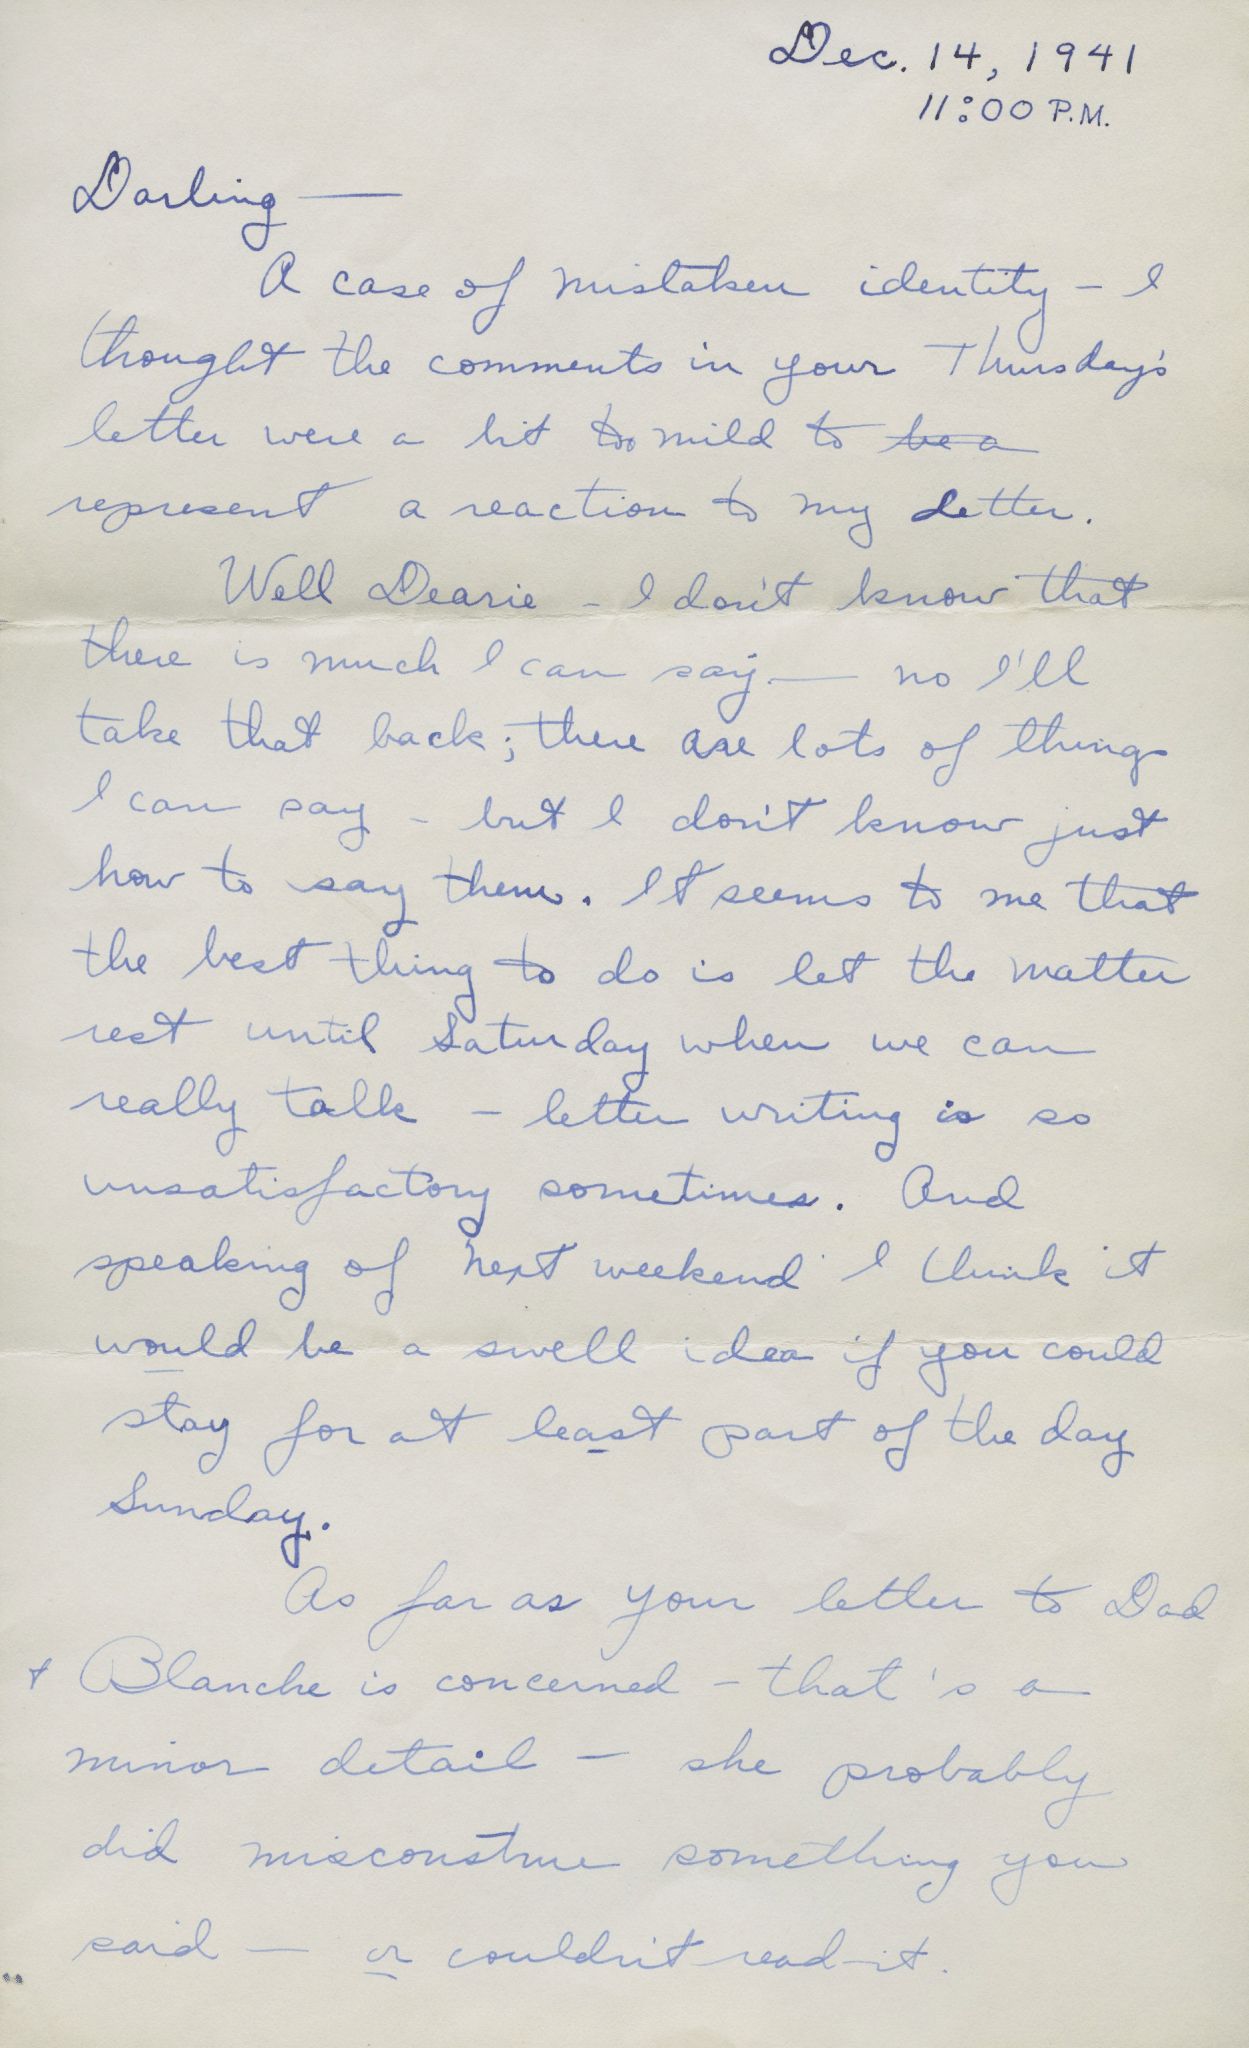 Dec. 14, 1941
11:00 P.M.
Darling —
A case of mistaken identity - I
thought the comments in your Thursday's
letter were a bit too mild to be a
represent a reaction to my letter.
Well Dearie - I don't know that
there is much I can say — no I'll
take that back; there are lots of things
I can say - but I don't know just
how to say them. It seems to me that
the best thing to do is let the matter
rest until Saturday when we can
really talk - letter writing is so
unsatisfactory sometimes. And
speaking of next weekend I think it
would be a swell idea if you could
stay for at least part of the day
Sunday.
As far as your letter to Dad
+ Blanche is concerned - that's a
minor detail - she probably
did misconstrue something you
said — or couldn't read it.